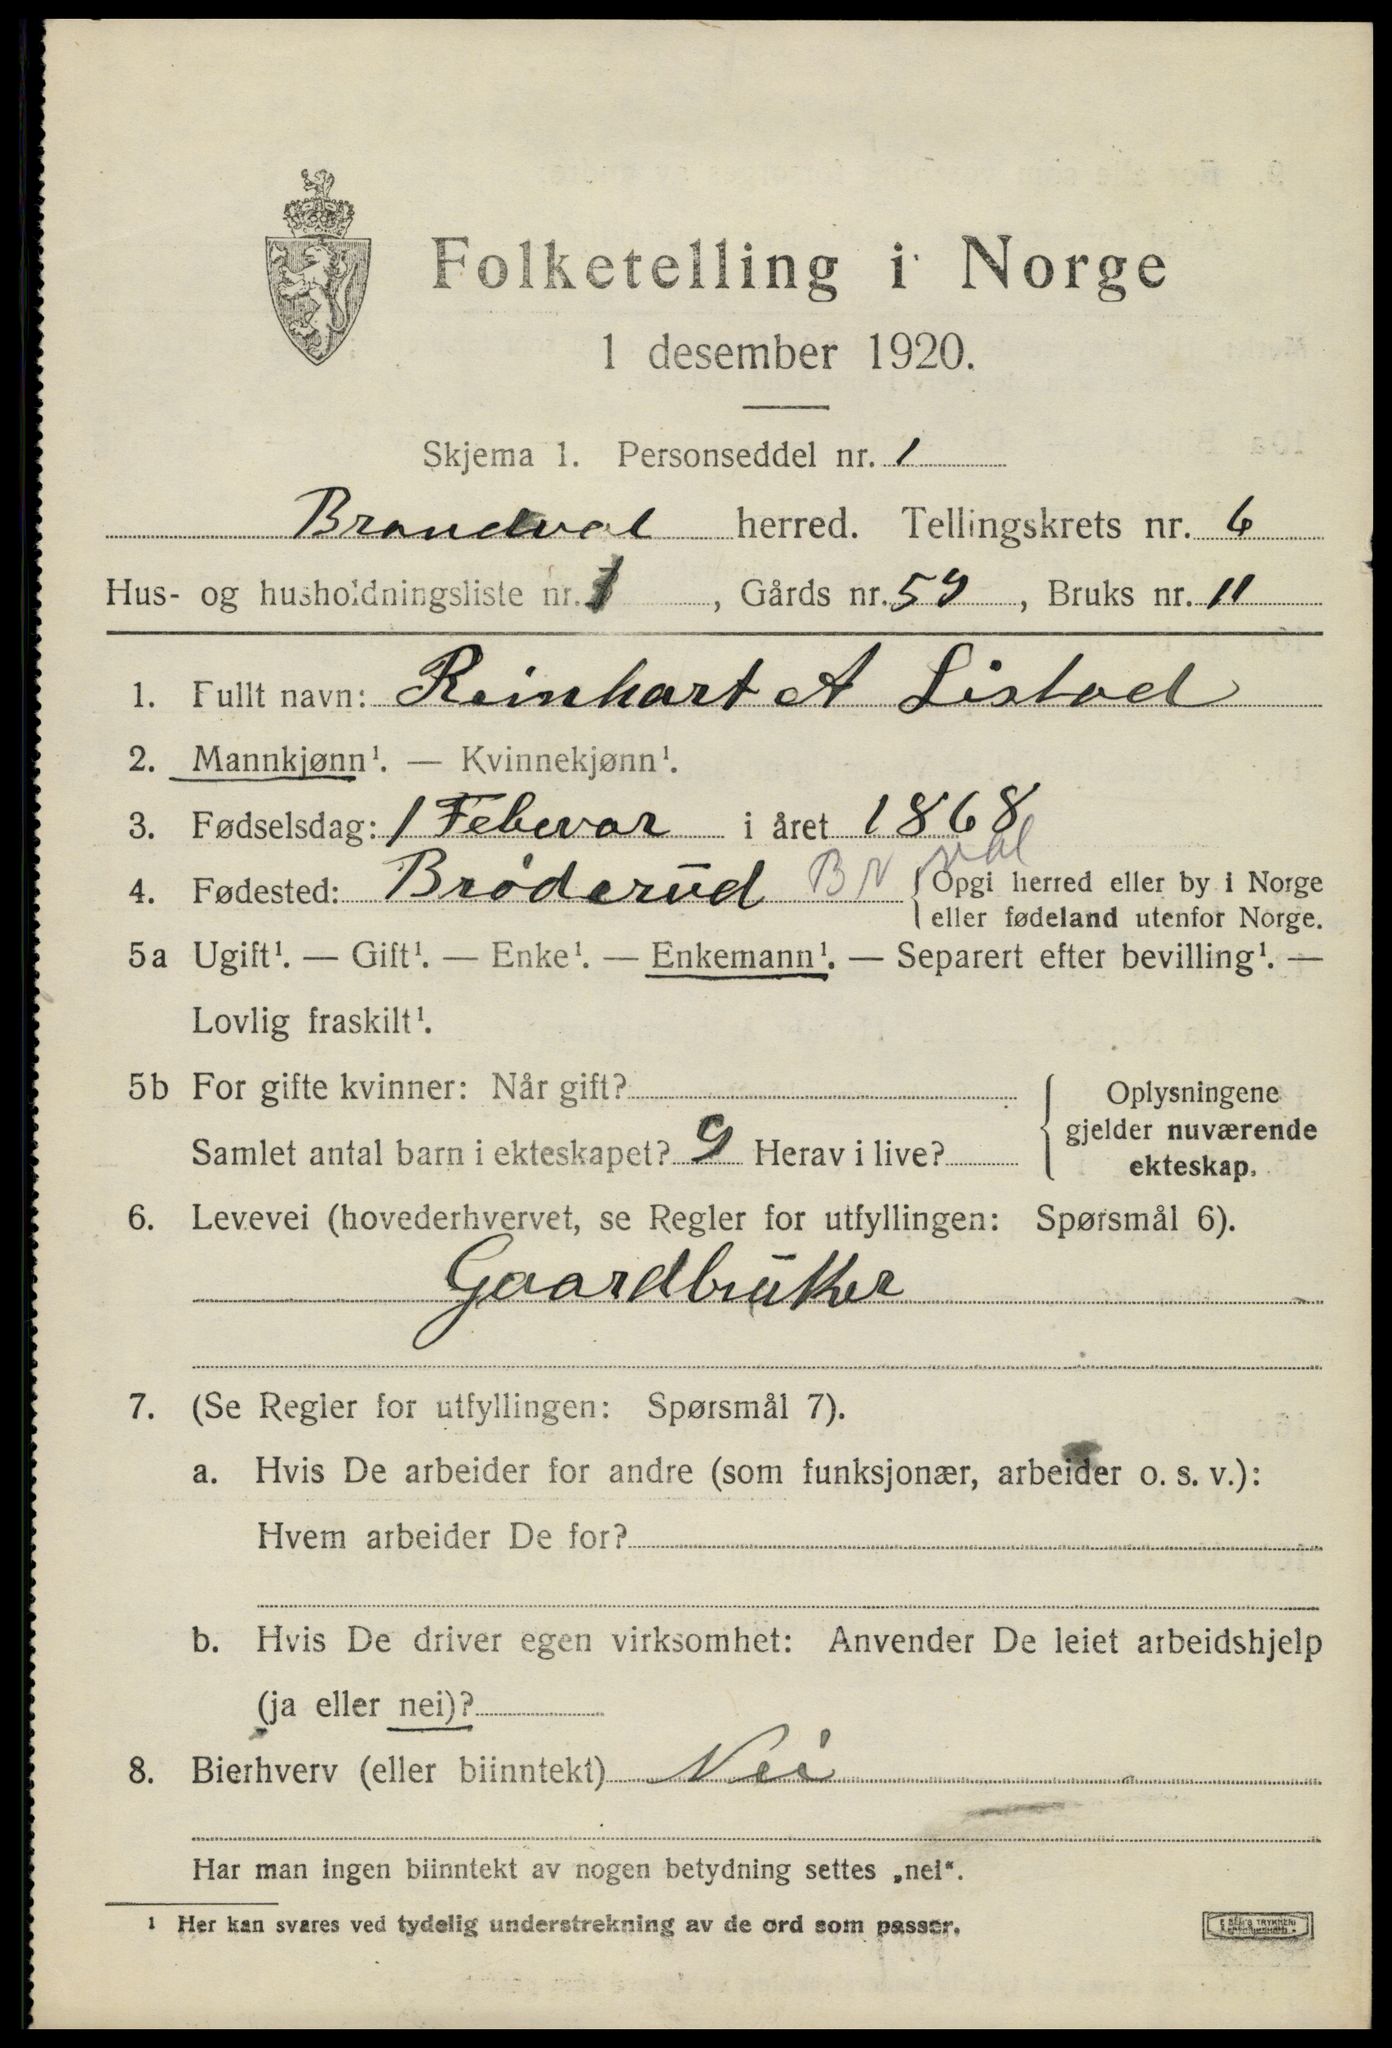 Folketelling i Norge
1 desember 1920.
Skjema 1. Personseddel nr. 1
Brandval herred. Tellingskrets nr. 6
Hus- og husholdningsliste nr. 1, Gårds nr. 59, Bruks nr. 11
1. Fullt navn: Reinhart A Listad
2. Mannkjønn¹. — Kvinnekjønn¹.
3. Fødselsdag: 1 Februar i året 1868
4. Fødested: Brøderud Br val { Opgi herred eller by i Norge
eller fødeland utenfor Norge.
5a Ugift¹. — Gift¹. — Enke¹. — Enkemann¹. — Separert efter bevilling¹. —
Lovlig fraskilt¹.
5b For gifte kvinner: Når gift?
Samlet antal barn i ekteskapet? 9 Herav i live?
{ Oplysningene
gjelder nuværende
ekteskap.
6. Levevei (hovederhvervet, se Regler for utfyllingen: Spørsmål 6).
Gaardbruker
7. (Se Regler for utfyllingen: Spørsmål 7).
a. Hvis De arbeider for andre (som funksjonær, arbeider o. s. v.):
Hvem arbeider De for?
b. Hvis De driver egen virksomhet: Anvender De leiet arbeidshjelp
(ja eller nei)?
8. Bierhverv (eller biinntekt) Nei
Har man ingen biinntekt av nogen betydning settes „nei“.
¹ Her kan svares ved tydelig understrekning av de ord som passer.